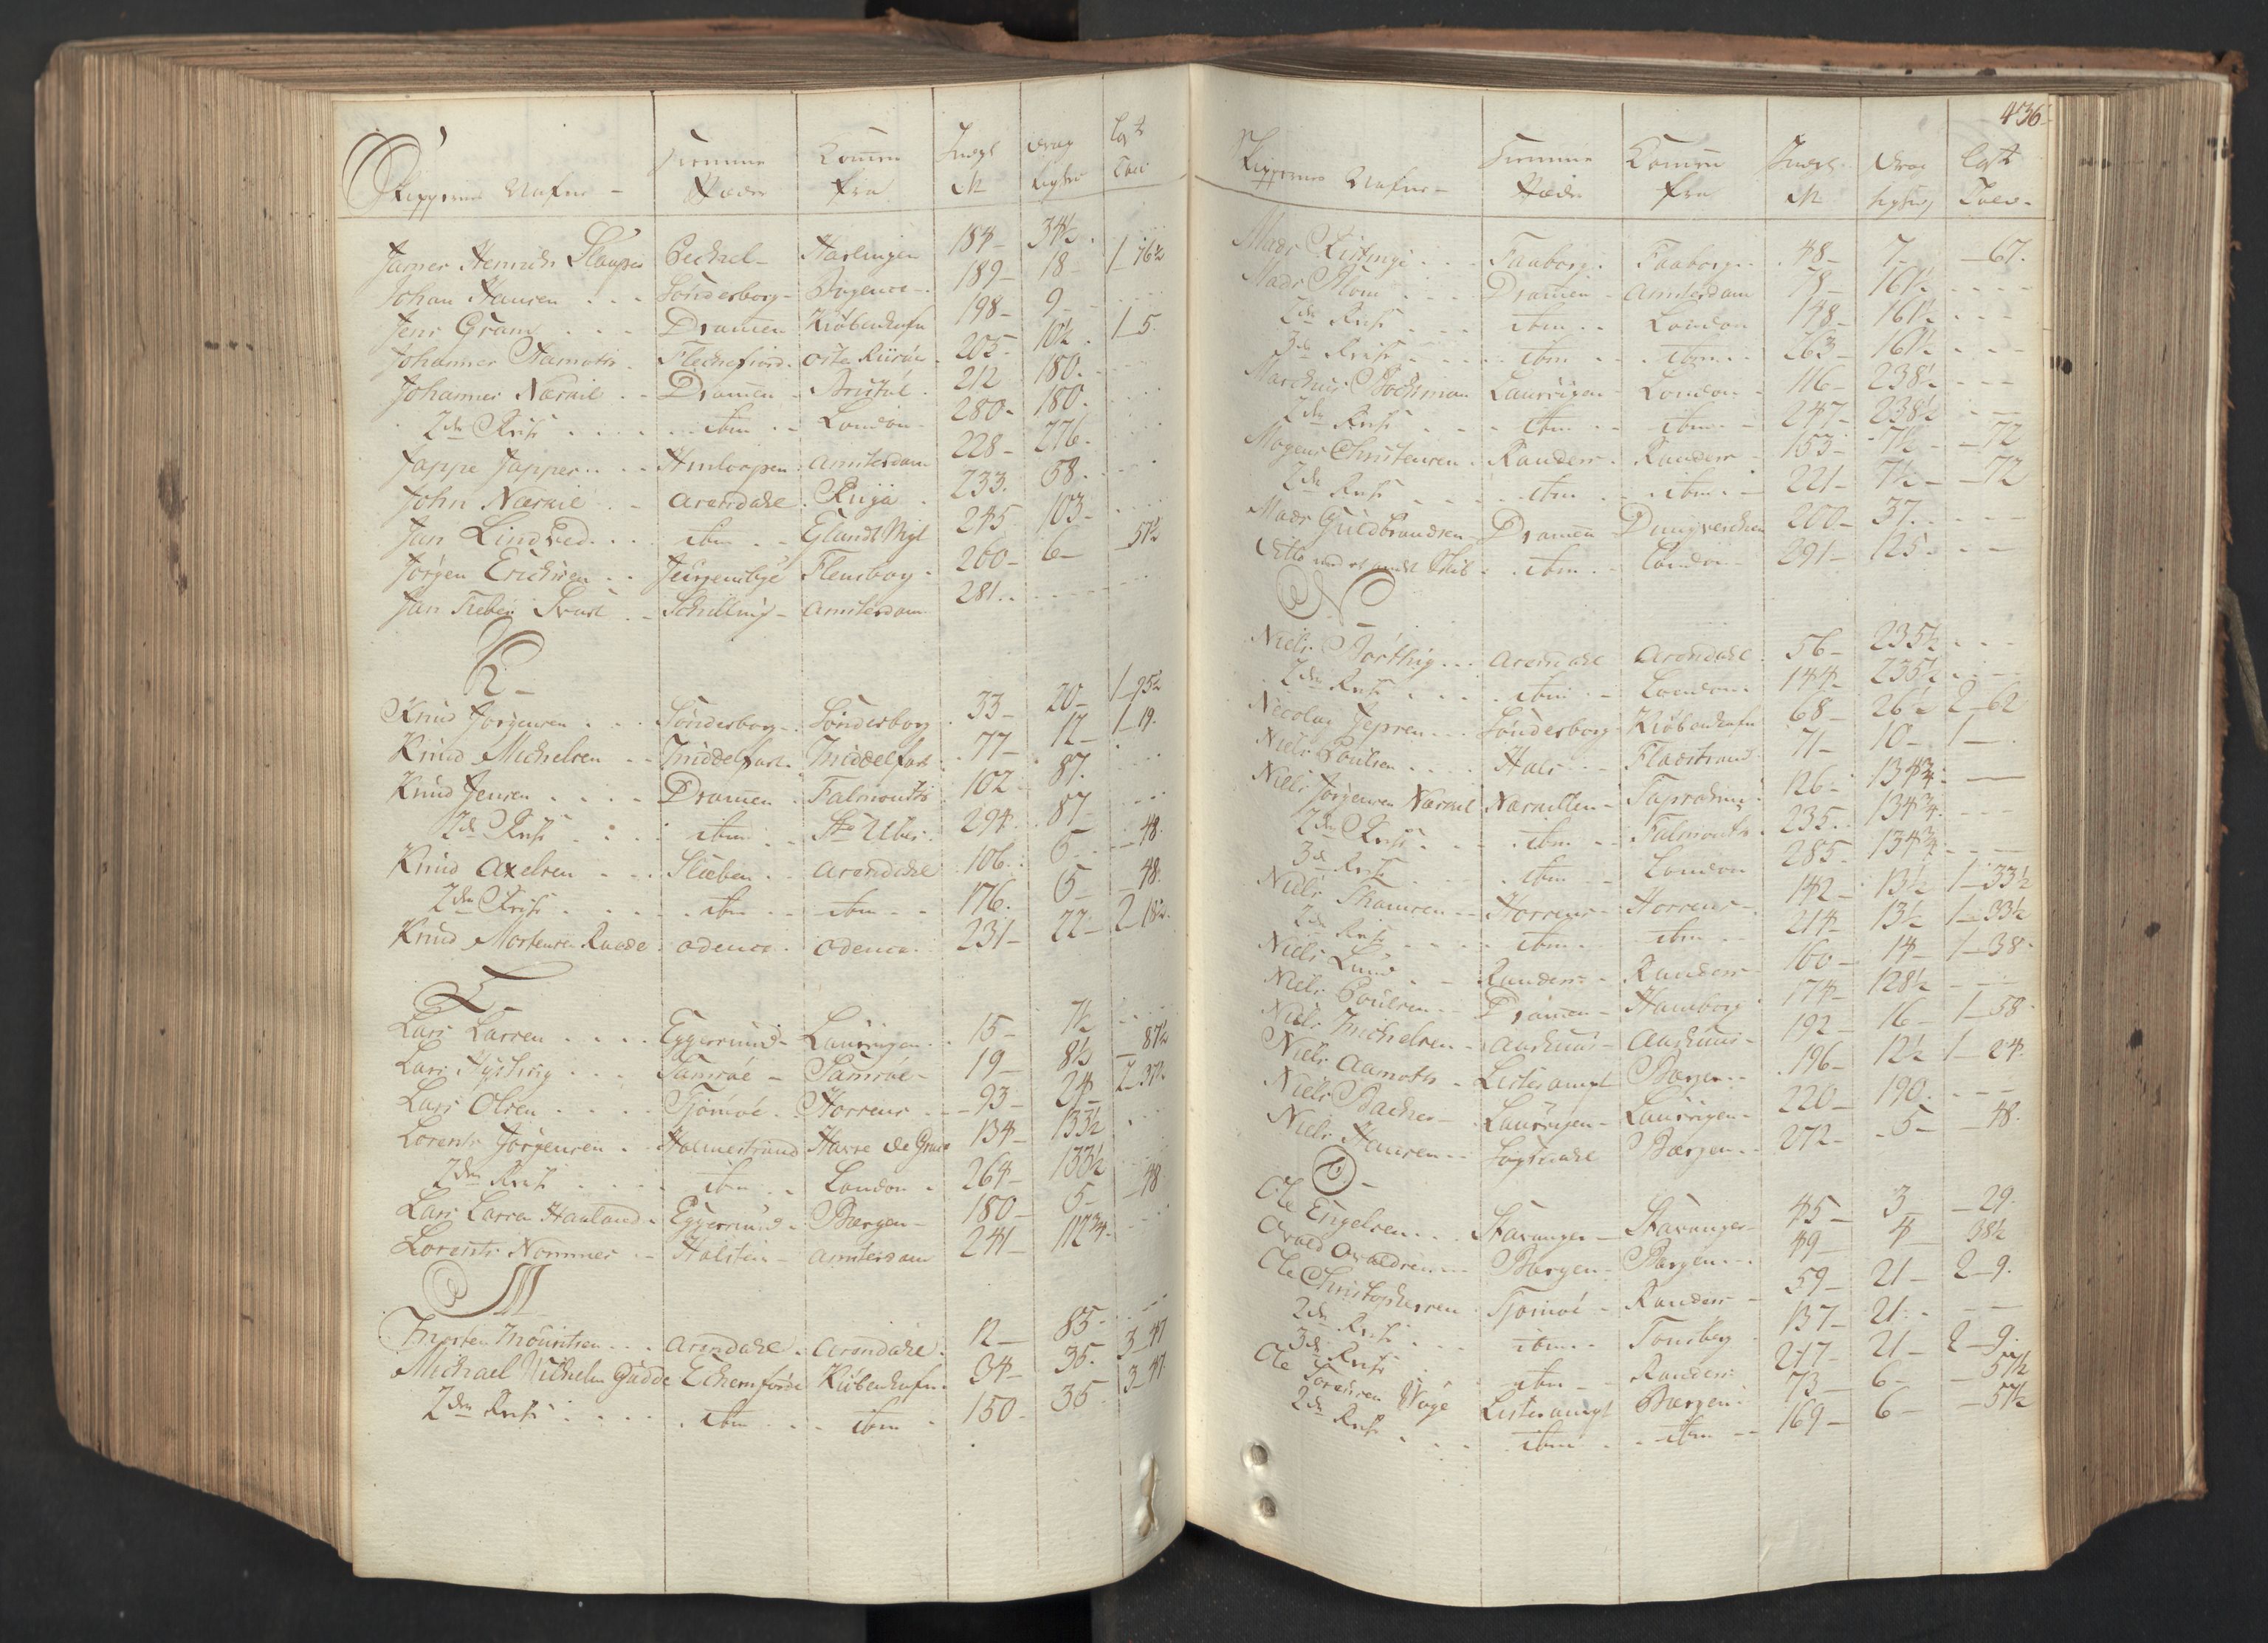 Skippernes Nafne - Hiemme Stæder Komen fra Indgl No Dræg tighed Lest Told
James Henrich Harlingen 184 - 34½ .
Johan Hansen . . . Sønderborg - 189 - 18 - 1 - 76½
Jens Gram . . . Dramen Kiøbenhafn 198 - 9 -
Johannes . 205 - 10½ . 1 - 5
Johannes Næraae . - Dramen - Bristol . 212 180 .
2den Reise . . . . ibm . - London - 280 - 180 .
Jappe Jappes . . . Amsterdam 228 - 276 .
John Næraae . - Arendahl . Riga . 233 . 58 .
Jan Lindved . . . ibm . - 245 103 -
Jørgen Erichsen . . Flensborg . 260 - 6 - - 57½
Jan Schilling - Amsterdam 281 . .
K -
Knud Jørgensen . . . Sønderborg - Sønderborg . 33 - 20 - 1 - 95½
Knud Michelsen - - Middelfart . Middelfart . 77 - 12 - 1 - 19 .
Knud Jensen . . . . Dramen . Falmouth . 102 . 87 .
2de Reise . . . ibm . . St Ubes . 294 . 87 -
Knud Axelsen . . . Arendahl . 106 . . 5 . - 48 .
2den Reise . . . . ibm - - ibm - - 176 . 5 - - 48 .
Knud Mortensen Raade . Odense . Odense . 231 - 22 - 2 - 18½
L -
Lars Larsen . . . . Eggersund - Laurvigen . . 15 - 7½
Lars . . . Samsøe - Samsøe - 19 - 8½ - 81½
Lars Olsen . . . . Tjømøe . . Horsens . - 93 - 24 - 2 - 37½
Lorents Jørgensen . . Holmestrand Havre de Grace 134 - 133½
2den Reise . . . ibm . . London . 264 - 133½
Lars Larsen Haaland . Eggersund . Bergen - 180 - 5 - - 48 .
Lorents Nommes . - Holsten - Amsterdam 241 - 112¾ .
M
Morten Mouritsen . . . Arendahl . Arendahl . 12 - 85 -
Michael Wilhelm Gudde Eckernførde Kiøbenhafn . 34 - 35 . 3 - 47
2den Reise . . . . . ibm . . . ibm . 150 - 35 . 3 - 47
436
Skippernes Nafne - Hiemme Stæder Komen fra Indgl No Dræg tighed Lest Told
Mads . . . Faaborg . Faaborg . . 48 - 7 - - 67 .
Mads Blom . . . Dramen - Amsterdam 8 - 161½
2de Reise . . . ibm . . London 148 - 161½
3de Reise . . . . ibm - . ibm . . 263 - 161½
Marchus Bochman Laurvigen - London . 116 - 238½
2de Reise . . . ibm . . ibm . . 247 - 238½
Mogens Christensen . Randers . Randers . 153 - 7½ - - 72
2de Reise . . . . ibm . . ibm . - 221 - 7½ - - 72
Mads Guldbrandsen - Dramen - 200 - 37 . .
Ditto med et andet Skib . ibm . . London - 291 - 125 .
N
Niels . . . Arendahl Arendahl . 56 - 235½
2de Reise . . . . ibm . - London . 144 - 235½
Nicolai Jepsen . . . Sønderborg Kiøbenhafn 68 - 26½ 2 - 62
Niels Poulsen . . . Hals - - Fladstrand 71 - 10 - 1 - .
Niels Jørgensen Næraae 126 - 134¾ .
2de Reise . . . - ibm - - Falmouth . 235 . . 134¾ .
3de Reise . . . . ibm - - London 285 - 134¾
Niels Thomsen - - Horsens - Horsens - 142 - 13½ 1 - 33½
2de Reise . . . . ibm . ibm - - 214 - 13½ 1 - 33½
Niels Lund . . - Randers - Randers - 160 - 14 - 1 - 38 .
Niels Poulsen - - Dramen - Hamborg 174 - 128½
Niels Michelsen - Aarhuus - Aarhuus - 192 - 16 - 1 - 58 .
Niels Aamoth - Listeramt Bergen - . 196 - 12½ 1 - 24 .
Niels Backer - . Laurvigen - Laurvigen - 220 - 190 .
Niels Hansen - - Bergen - . 272 - - 5 - - 48 .
O -
Ole Engelsen . . . Stavanger - Stavanger - 45 - 3 - - 29 .
Osvald Osvaldsen - - Bergen - Bergen - . 49 - 4 38½
Ole Christophersen . Tjømøe - Randers - 59 - 21 - 2 - 9 .
2de Reise . . . ibm . . Tonsberg 137 - 21 .
3de Reise . . . ibm - - Randers . 217 - 21 - 2 - 9 .
Ole Toresen Vaage Listeramt Bergen - 73 - 6 - - 57½
2de Reise . . . . ibm . - ibm - - 169 - 6 - - 57½